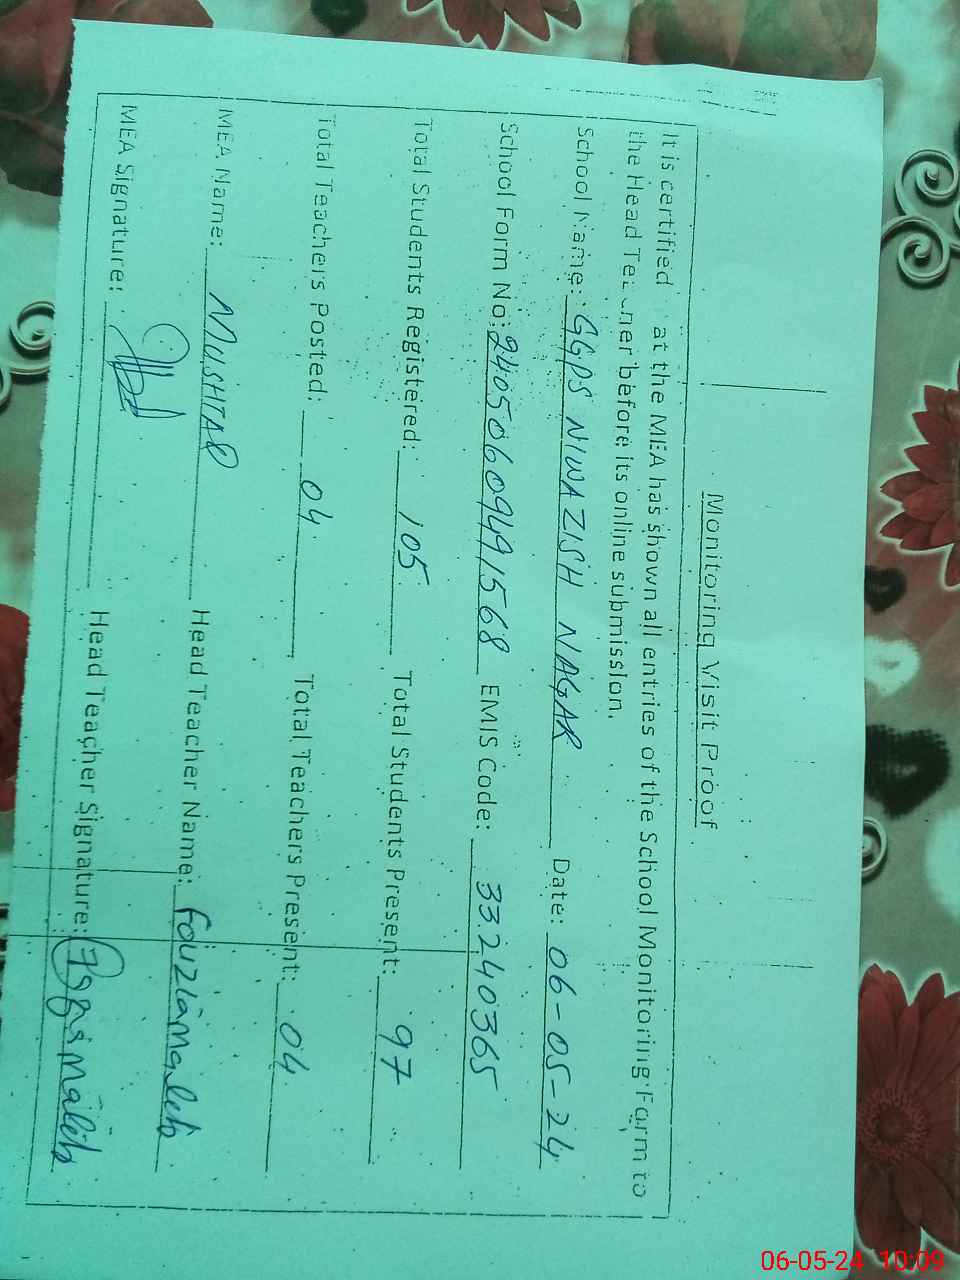 Monitoring Visit Proof
It is certified at the MEA has shown all entries of the School Monitoring Form to
the Head Teacher before its online submission.
School Name: GGPS NIWAZISH NAGAR Date: 06-05-24
School Form No: 24050609491568 EMIS Code: 33240365
Total Students Registered: 105 Total Students Present: 97
Total Teachers Posted: 04 Total Teachers Present: 04
MEA Name: MUSHTAQ Head Teacher Name: Fouzia
MEA Signature: Head Teacher Signature:
06-05-24 10:09